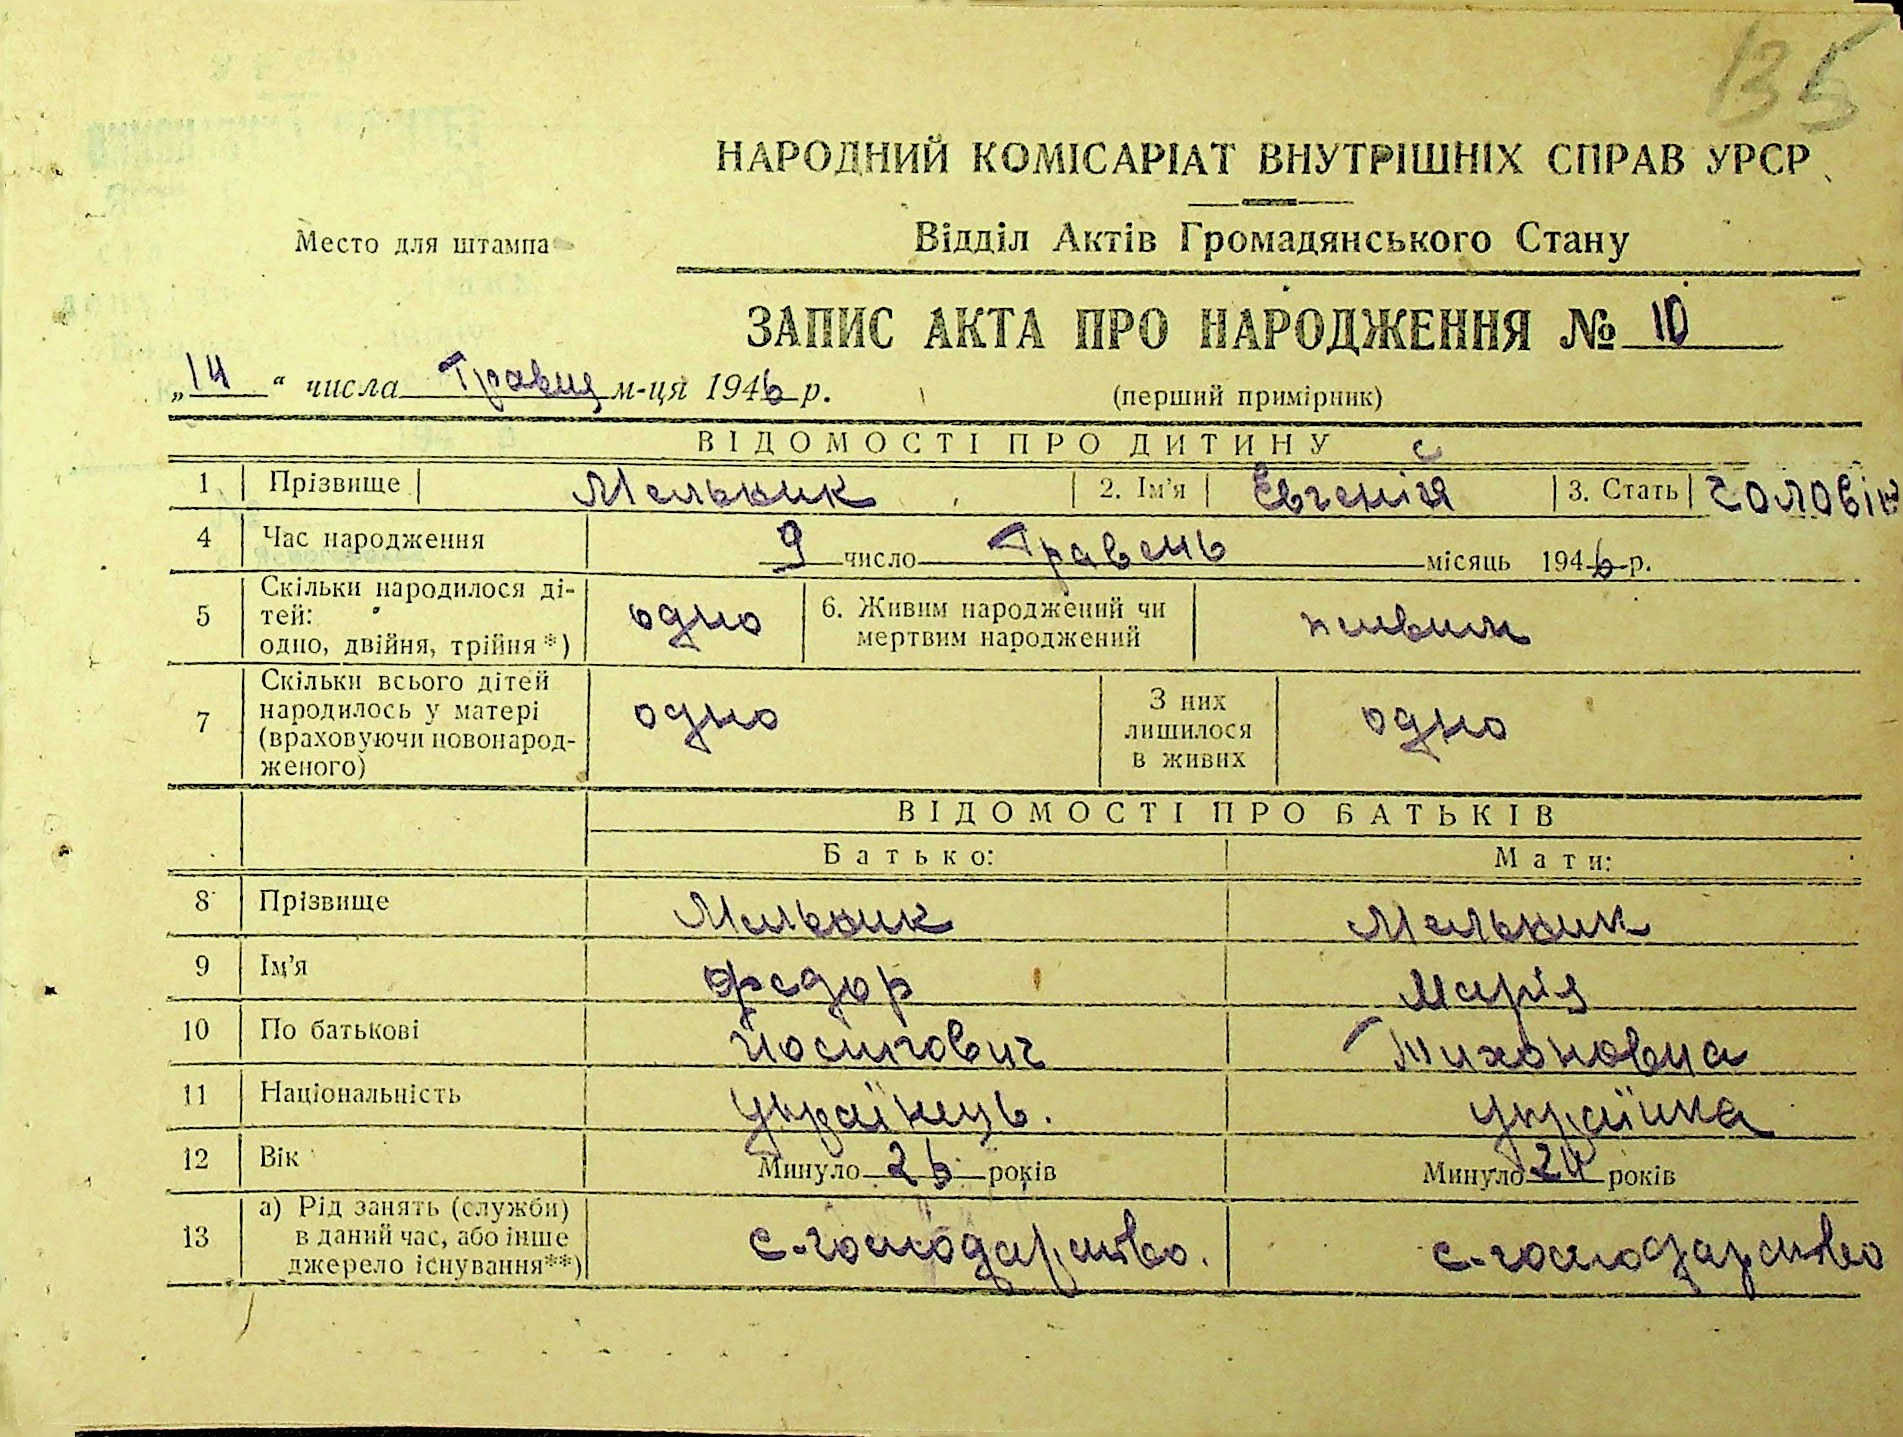 135
НАРОДНИЙ КОМІСАРІАТ ВНУТРІШНІХ СПРАВ УРСР
Место для штампа
Відділ Актів Громадянського Стану
ЗАПИС АКТА ПРО НАРОДЖЕННЯ № 10
„14“ числа Травня м-ця 1946 р.
(перший примірник)
ВІДОМОСТІ ПРО ДИТИНУ
1 Прізвище Мельник 2. Ім'я Євгеній 3. Стать Чоловік
4 Час народження 9 число Травень місяць 1946 р.
5 Скільки народилося ді-
тей:
одно, двійня, трійня*) одно 6. Живим народжений чи
мертвим народжений живим
7 Скільки всього дітей
народилось у матері
(враховуючи новонарод-
женого) одно З них
лишилося
в живих одно
ВІДОМОСТІ ПРО БАТЬКІВ
Батько: Мати:
8 Прізвище Мельник Мельник
9 Ім'я Федор Марія
10 По батькові Йосипович Тихоновна
11 Національність Українець. Українка
12 Вік Минуло 26 років Минуло 24 років
13 а) Рід занять (служби)
в даний час, або інше
джерело існування**) с.-господарство. с.-господарство